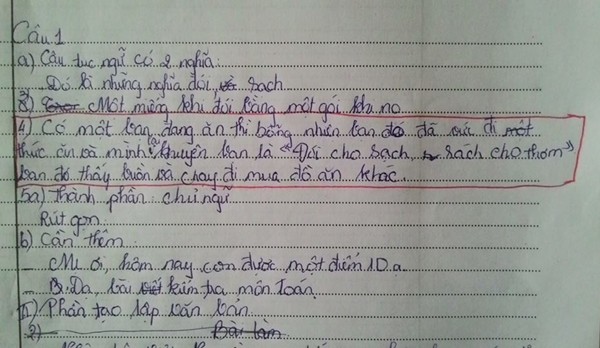 Câu 1
a) Câu tục ngữ có 2 nghĩa:
Đó là những nghĩa đói, sạch
3) Một miếng khi đói bằng một gói khi no
4) Có một bạn đang ăn thì bỗng nhiên bạn đó đã vứt đi một
thức ăn và mình khuyên bạn là "Đói cho sạch, rách cho thơm"
bạn đó thấy buồn và chạy đi mua đồ ăn khác.
5a) Thành phần chủ ngữ
Rút gọn
b) Cần thêm
_ Mẹ ơi, hôm nay con được một điểm 10 ạ
_ B. Dạ, bài kiểm tra môn Toán
II) Phần tạo lập văn bản
2) Bài làm